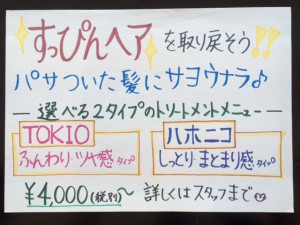 すっぴんヘア を取り戻そう!!
パサついた髪にサヨウナラ♪
― 選べる2タイプのトリートメントメニュー ―
TOKIO
ふんわり・ツヤ感 タイプ
ハホニコ
しっとり・まとまり感 タイプ
¥4,000(税別)〜 詳しくはスタッフまで♡